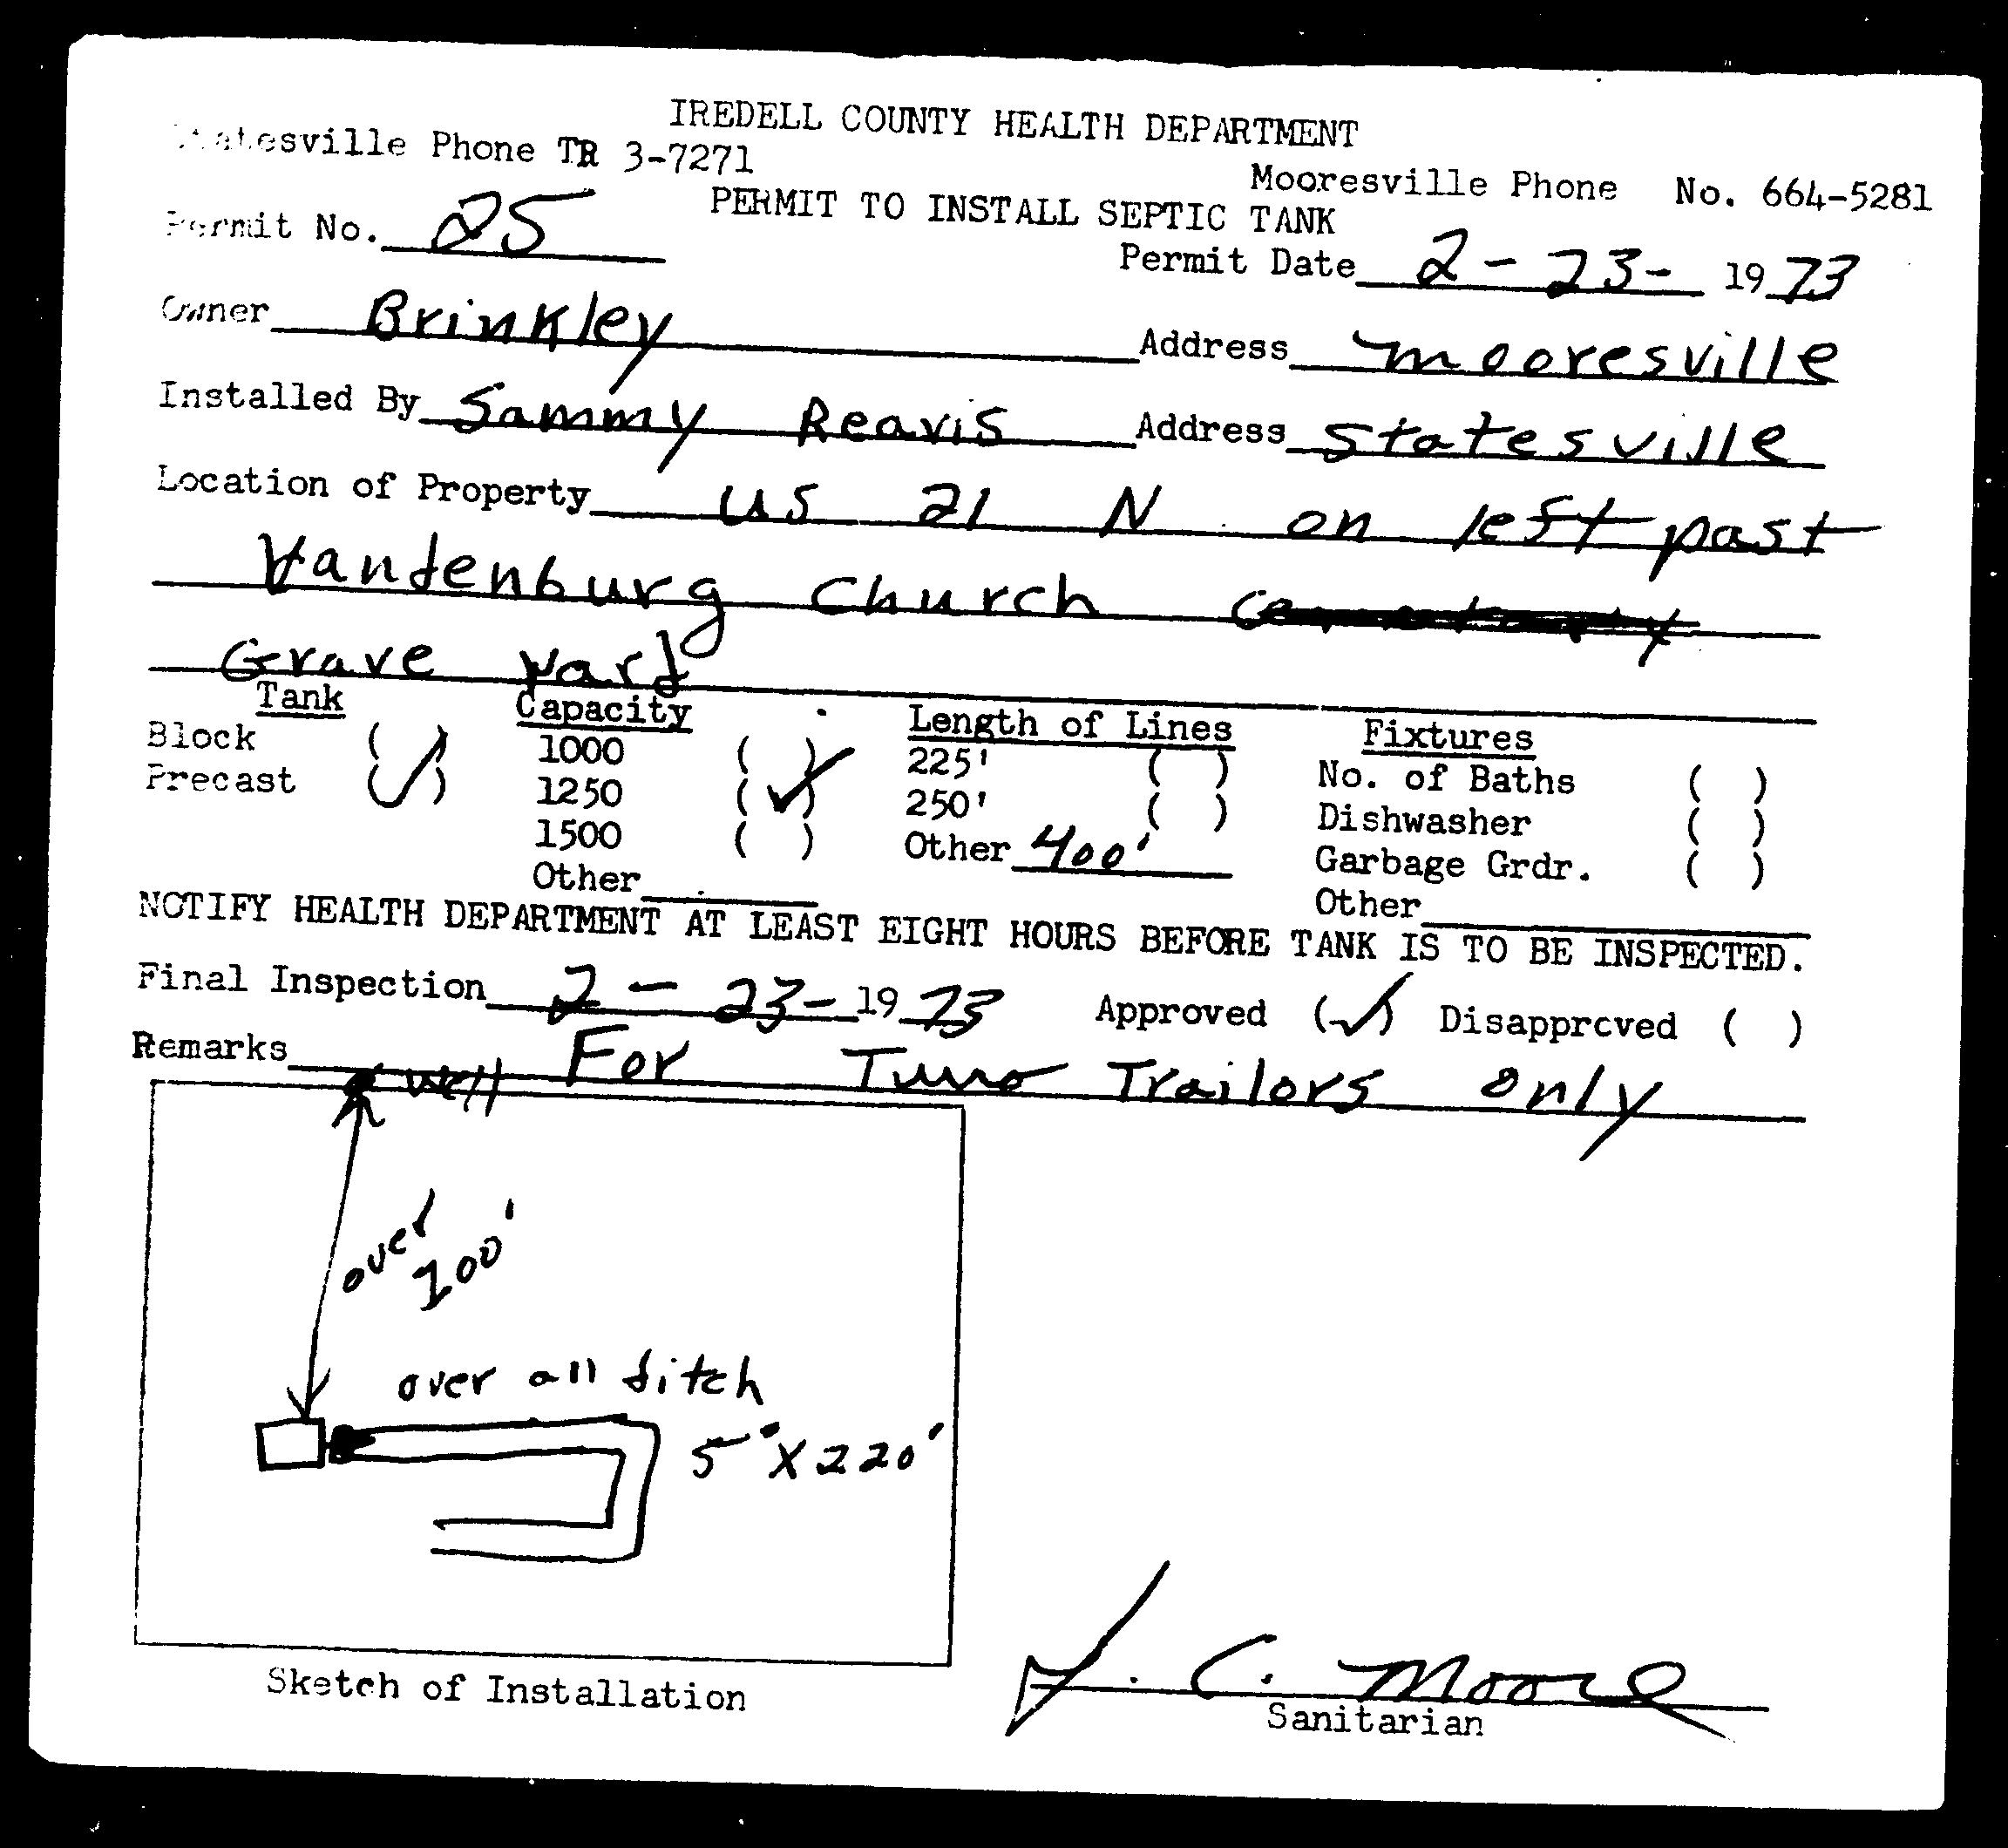 IREDELL COUNTY HEALTH DEPARTMENT
Statesville Phone TR 3-7271 Mooresville Phone No. 664-5281
PERMIT TO INSTALL SEPTIC TANK
Permit No. 25 Permit Date 2-23- 1973
Owner Brinkley Address mooresville
Installed By Sammy Reavis Address statesville
Location of Property US 21 N on left past
Vandenburg Church
Grave yard
Tank Capacity Length of Lines Fixtures
Block ( ) 1000 ( ) 225' ( ) No. of Baths ( )
Precast (✓) 1250 (✓) 250' ( ) Dishwasher ( )
1500 ( ) Other 400' Garbage Grdr. ( )
Other Other
NOTIFY HEALTH DEPARTMENT AT LEAST EIGHT HOURS BEFORE TANK IS TO BE INSPECTED.
Final Inspection 2-23-1973 Approved (✓) Disapproved ( )
Remarks For Two Trailors only
well
over
200'
over all ditch
5' X 220'
Sketch of Installation
J. C. Moore
Sanitarian